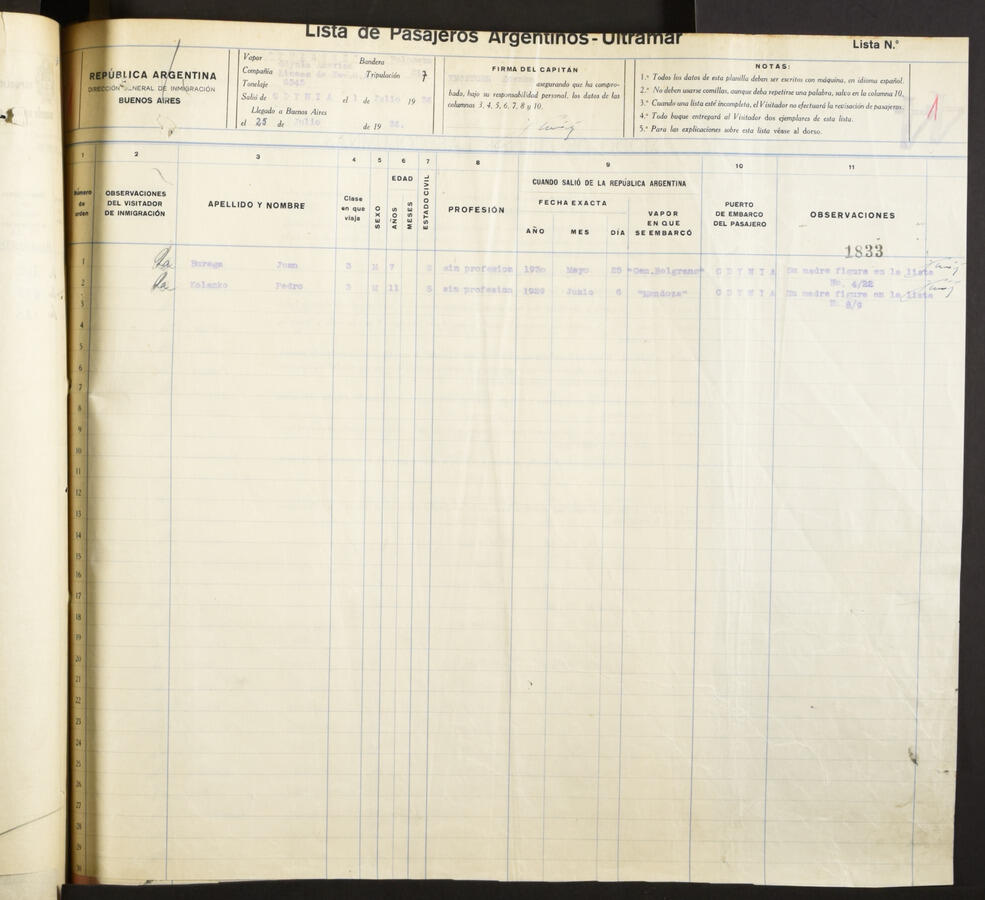 Lista de Pasajeros Argentinos - Ultramar
Lista N.°
REPÚBLICA ARGENTINA
DIRECCIÓN GENERAL DE INMIGRACIÓN
BUENOS AIRES
Vapor
Bandera
Compañía
Tripulación 7
Tonelaje
Salió de GDYNIA el 1 de Julio 19
Llegado a Buenos Aires
el 25 de Julio de 19
FIRMA DEL CAPITÁN
asegurando que ha compro-
bado, bajo su responsabilidad personal, los datos de las
columnas 3, 4, 5, 6, 7, 8 y 10.
NOTAS:
1.ª Todos los datos de esta planilla deben ser escritos con máquina, en idioma español.
2.ª No deben usarse comillas, aunque deba repetirse una palabra, salvo en la columna 10.
3.ª Cuando una lista esté incompleta, el Visitador no efectuará la revisación de pasajeros.
4.ª Todo buque entregará al Visitador dos ejemplares de esta lista.
5.ª Para las explicaciones sobre esta lista véase al dorso.
1
1 2 3 4 5 6 7 8 9 10 11
Número de orden
OBSERVACIONES DEL VISITADOR DE INMIGRACIÓN
APELLIDO Y NOMBRE
Clase en que viaja
SEXO
EDAD
AÑOS
MESES
ESTADO CIVIL
PROFESIÓN
CUANDO SALIÓ DE LA REPÚBLICA ARGENTINA
FECHA EXACTA
AÑO MES DÍA
VAPOR EN QUE SE EMBARCÓ
PUERTO DE EMBARCO DEL PASAJERO
OBSERVACIONES
1833
1 Buraga Juan 3 M 7 S sin profesion 1930 Mayo 25 "Gen.Belgrano" GDYNIA Su madre figura en la lista
No. 4/22
2 Kolanko Pedro 3 M 11 S sin profesion 1929 Junio 6 "Mendoza" GDYNIA Su madre figura en la lista
3
4
5
6
7
8
9
10
11
12
13
14
15
16
17
18
19
20
21
22
23
24
25
26
27
28
29
30